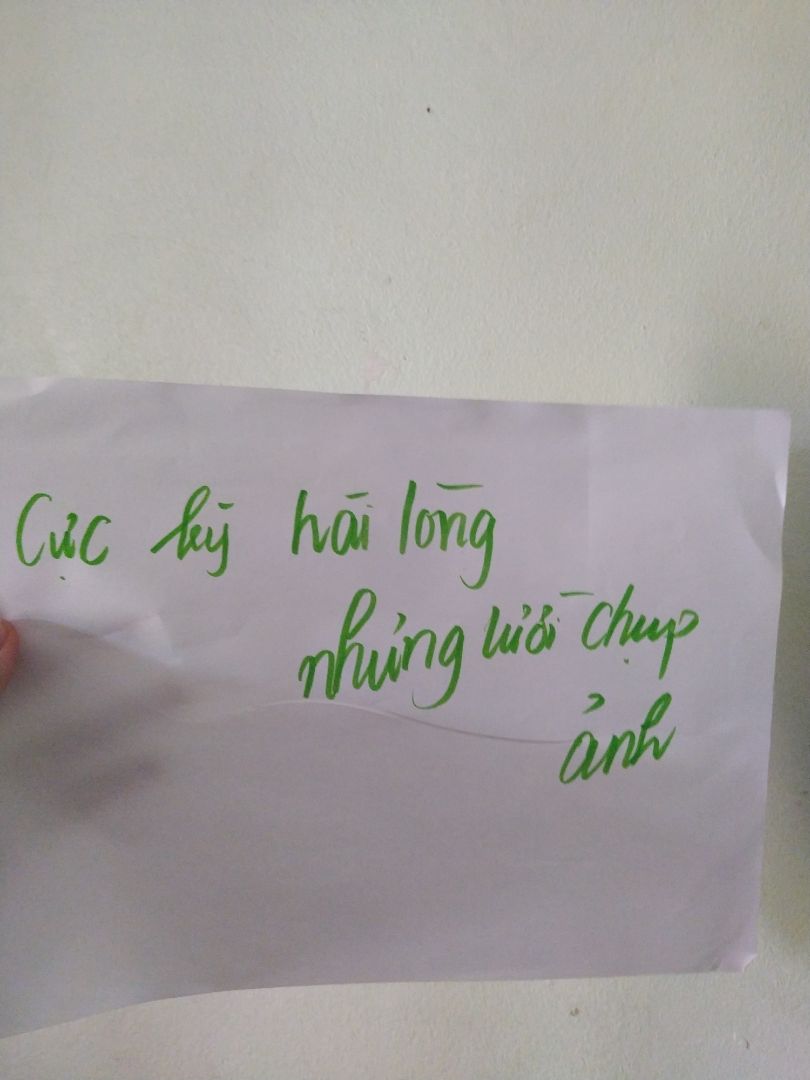 Cực kỳ hài lòng
nhưng lười chụp
ảnh